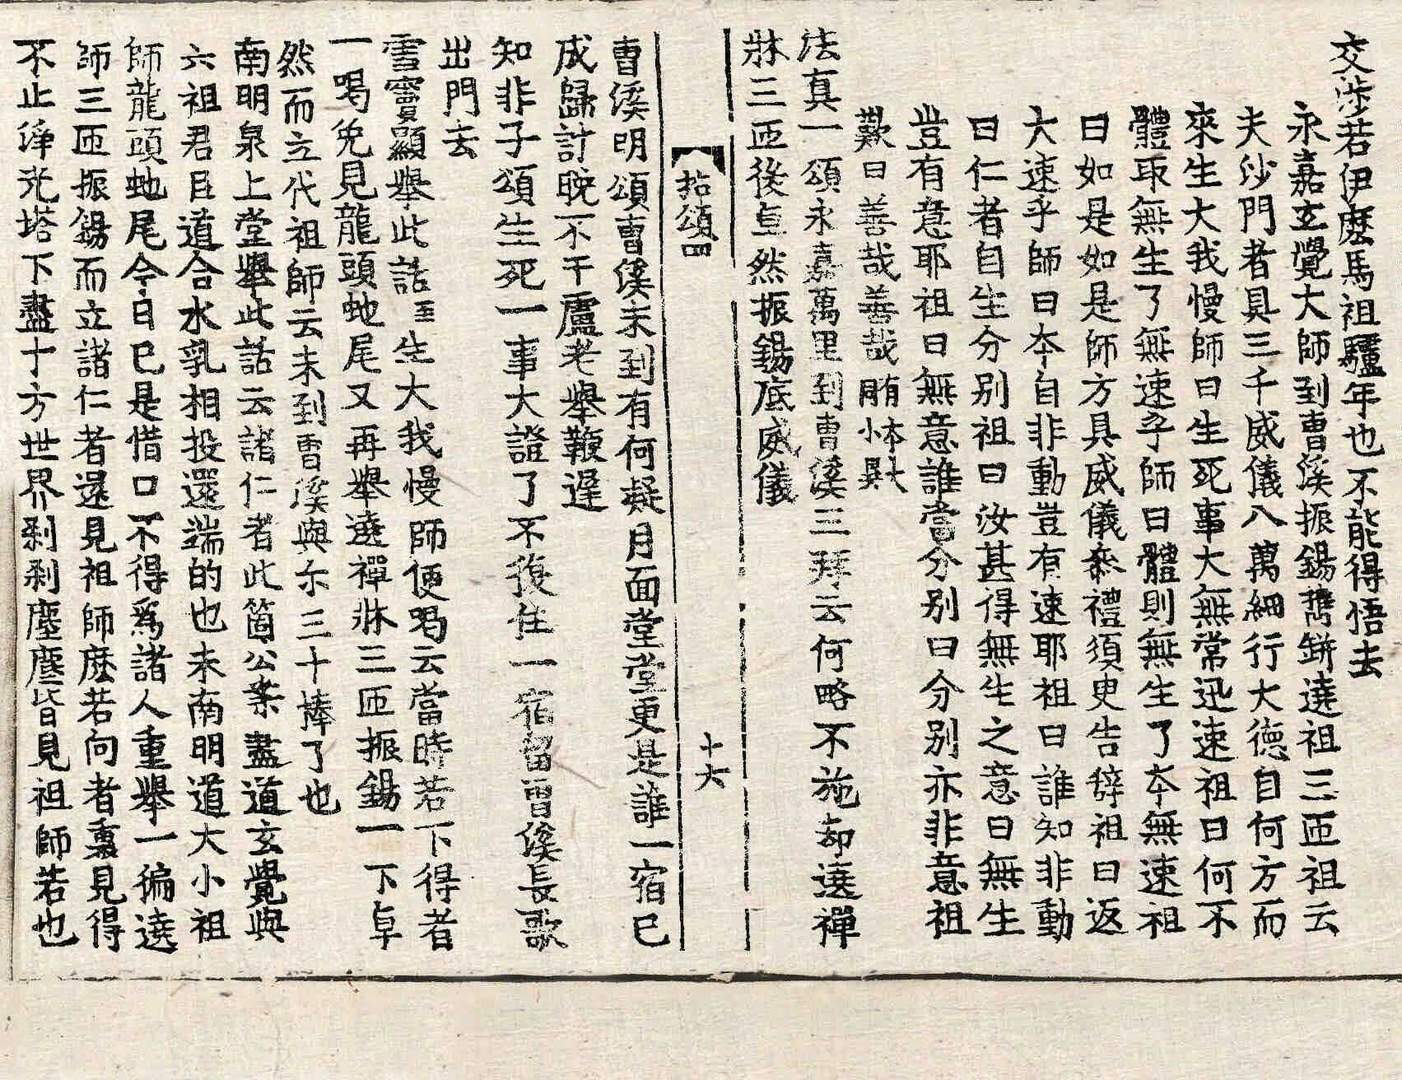 交涉若伊麽馬祖驢年也不能得悟去
永嘉玄覺大師到曹溪振錫𢹂缾遶祖三匝祖云
夫沙門者具三千威儀八萬細行大德自何方而
來生大我慢師曰生死事大無常迅速祖曰何不
體取無生了無速乎師曰體則無生了夲無速祖
曰如是如是師方具威儀叅禮須臾告辤祖曰返
大速乎師曰夲自非動豈有速耶祖曰誰知非動
曰仁者自生分別祖曰汝甚得無生之意曰無生
豈有意耶祖曰無意誰當分別曰分別亦非意祖
歎曰善哉善哉 夲大同小異
法真一頌永嘉萬里到曹溪三拜云何略不施却遶禪
牀三匝後卓然振錫底威儀
拈頌四
十六
曹溪明頌曹溪未到有何疑月面堂堂更是誰一宿已
成歸計晚不干盧老舉鞭遲
知非子頌生死一事大證了不復住一宿留曹溪長歌
出門去
雪竇顯舉此話至生大我慢師便喝云當時若下得者
一喝免見龍頭虵尾又再舉遶禪牀三匝振錫一下卓
然而立代祖師云未到曹溪與尒三十棒了也
南明泉上堂舉此話云諸仁者此箇公案盡道玄覺與
六祖君臣道合水乳相投還端的也未南明道大小祖
師龍頭虵尾今日已是借口不得爲諸人重舉一徧遶
師三匝振錫而立諸仁者還見祖師麽若向者裏見得
不止淨光塔下盡十方世界刹刹塵塵皆見祖師若也